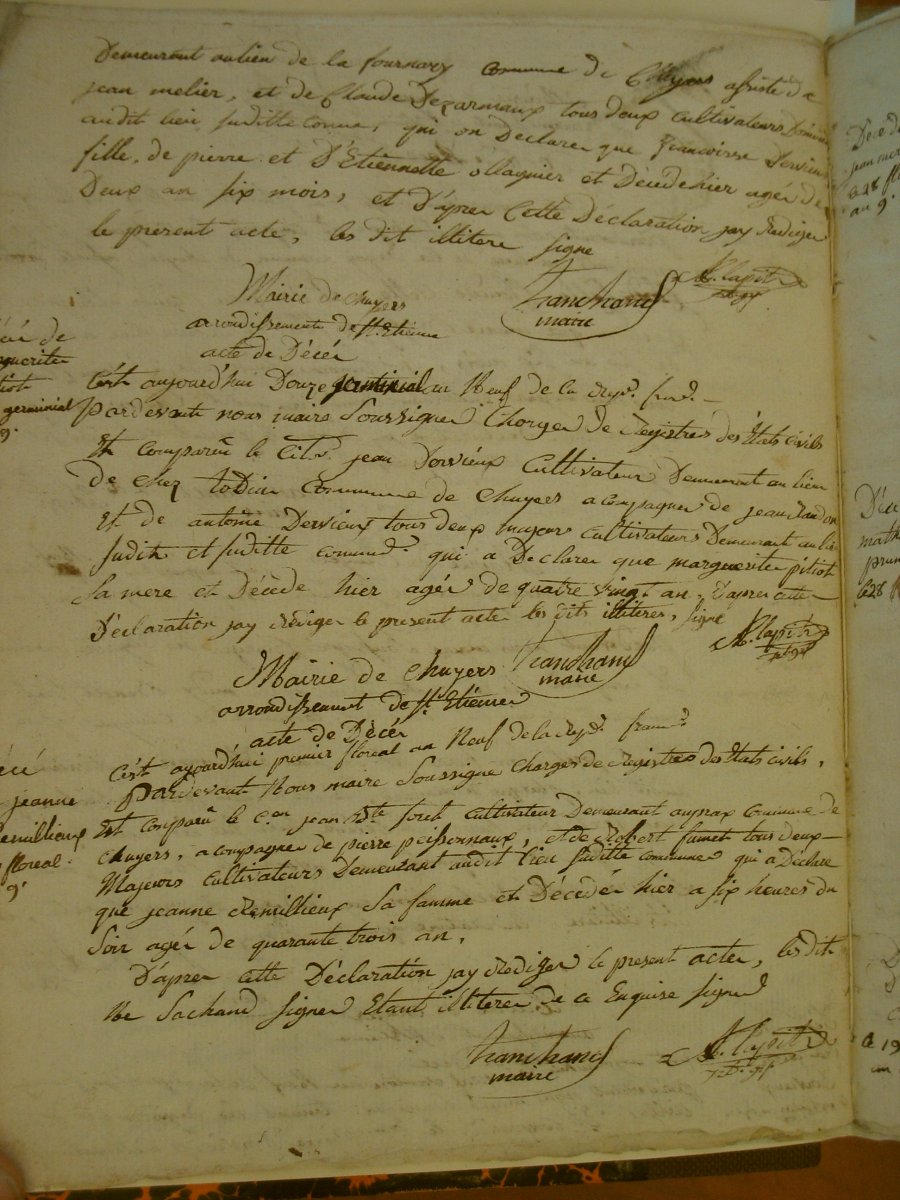 Demeurant au lieu de la fournary commune de Chuyers assisté de
jean melier, et de Claude Dezarmaux tous deux cultivateurs Demeurant
audit lieu suditte comune, qui on Declarer que francoisse Dervieux
fille, de pierre et D'Etiennette Magnier et Décedé hier agér de
Deux an six mois, et D'áprer Cette Déclaration jay Rediger
le present acte, les dit illitere signe
Tranchand
maire
Mairie de chuyers
arrondissement de St. Etienne
acte de Décér
Cest aujourd'hui Douze germinial an Neuf de la Rep. franç.
Pardevant nous maire Soussigner Charger de Registres des États civils
Et comparû le Cit. jean Dervieux Cultivateur Demeurant au lieu
De chez todiu Commune de Chuyers acompagner de jean randon
Et de antoine Dervieux tous deux majeurs cultivateurs Demeurant au lieu
sudit et suditte comune qui a Declarer que marguerite pitiot
Sa mere et Décède hier agér de quatre vingt an, D'aprer cette
Déclaration jay Rédiger le present acter les dits illiteres, signe
Tranchand
maire
Mairie de Chuyers
arrondissement de St. Etienne
acte de Décér
Cest aujord'hui premier floreal an Neuf de la Rep. franç.
Pardevant Nous maire Soussigne Charger de Registres des Etats civils,
Est comparû le c.en jean B.te forest cultivateur Demeurant auprax Commune de
Chuyers, acompagner de pierre peissonnaux, et de Robert fumet tous deux
Majeurs cultivateurs Demeurant audit lieu suditte commune qui a Déclare
que jeanne Remillieux Sa famme et Décedér hier a six heures du
Soir agér de quarante trois an,
D'aprer cette Déclaration jay Rediger le present acter, les dit
Ne Sachand signer Etant illiterer de ce Enquise signe
Tranchand
maire
germinial
9.
jeanne
floreal
9'
Décé
an 9.